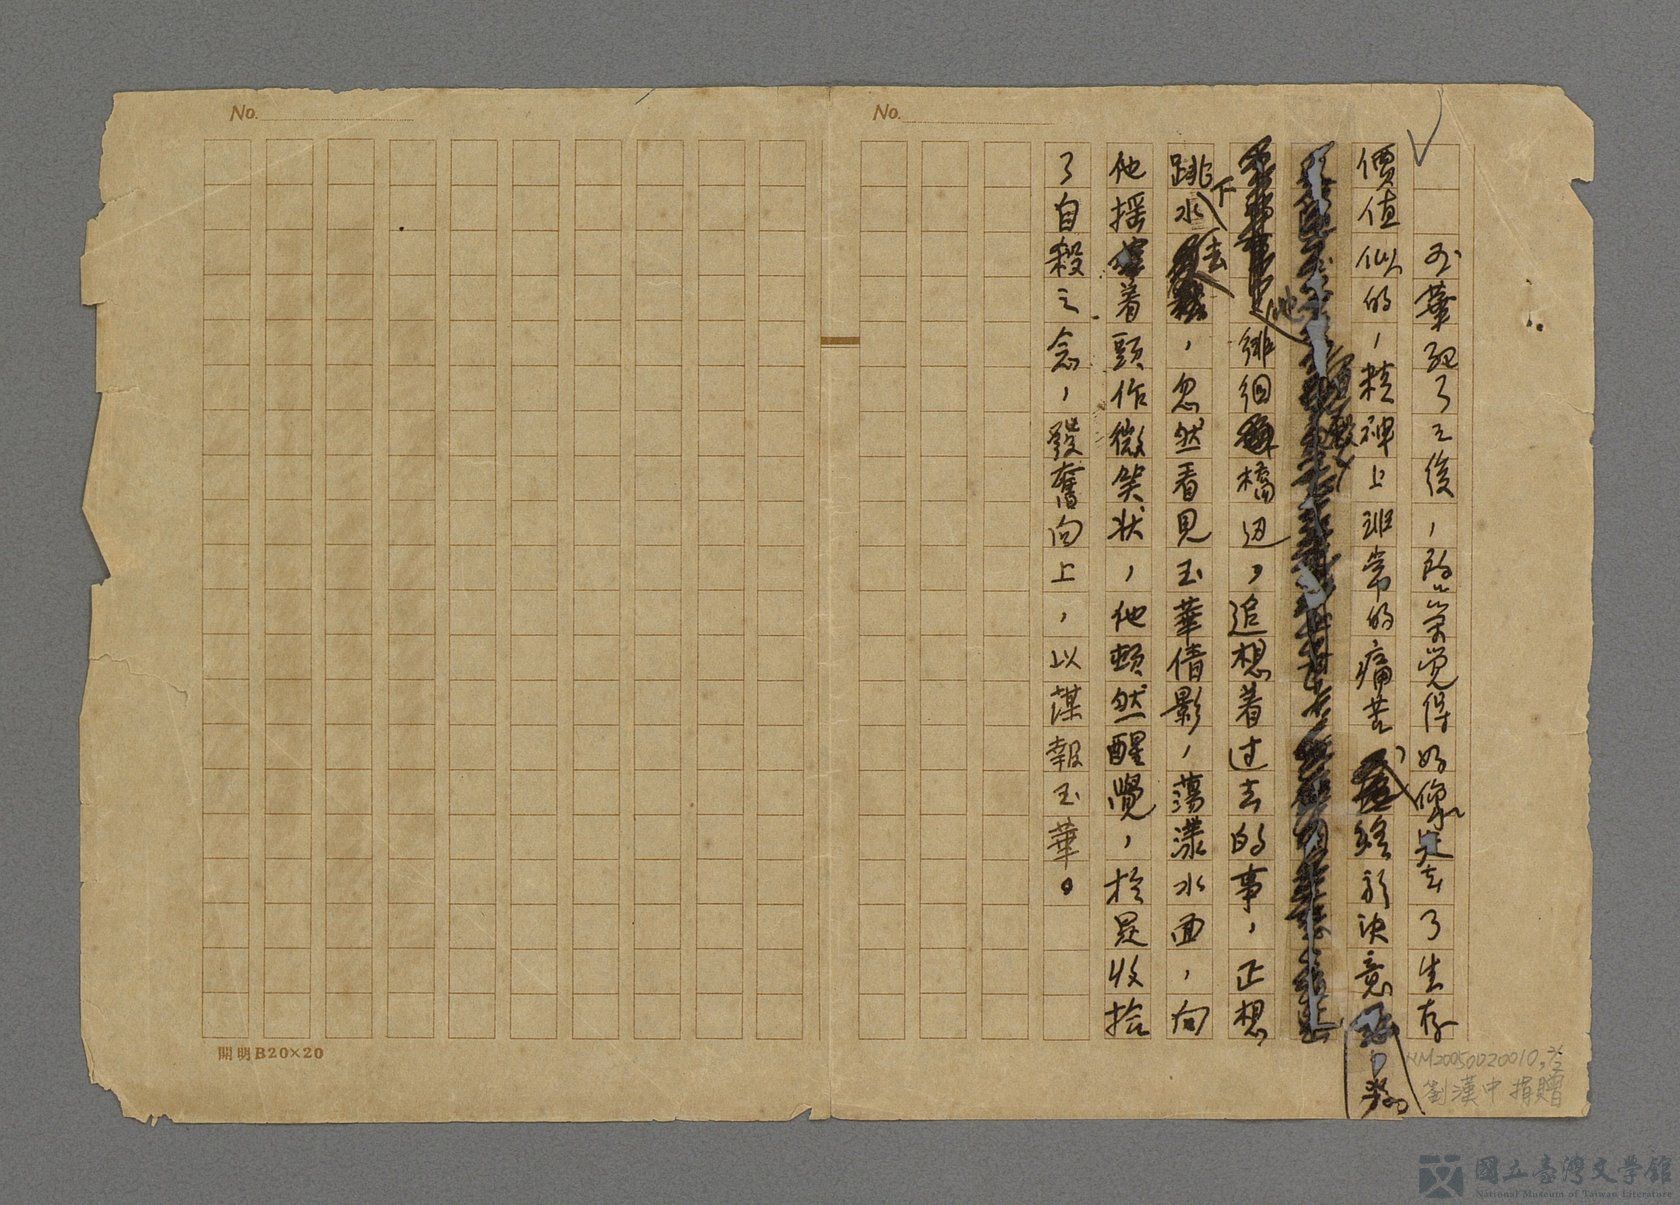 No.
No.
玉華死了之後，榮覺得好像失去了生存
價值似的，精神上非常的痛苦，終於決意
他徘徊橋辺，追想着过去的事，正想
跳下水去，忽然看見玉華倩影，蕩漾水面，向
他搖着頭作微笑状，他頓然醒覺，於是收拾
了自殺之念，發奮向上，以謀報玉華。
開明B20×20
NM20050020010
劉漢中捐贈
國立臺灣文學館
National Museum of Taiwan Literature